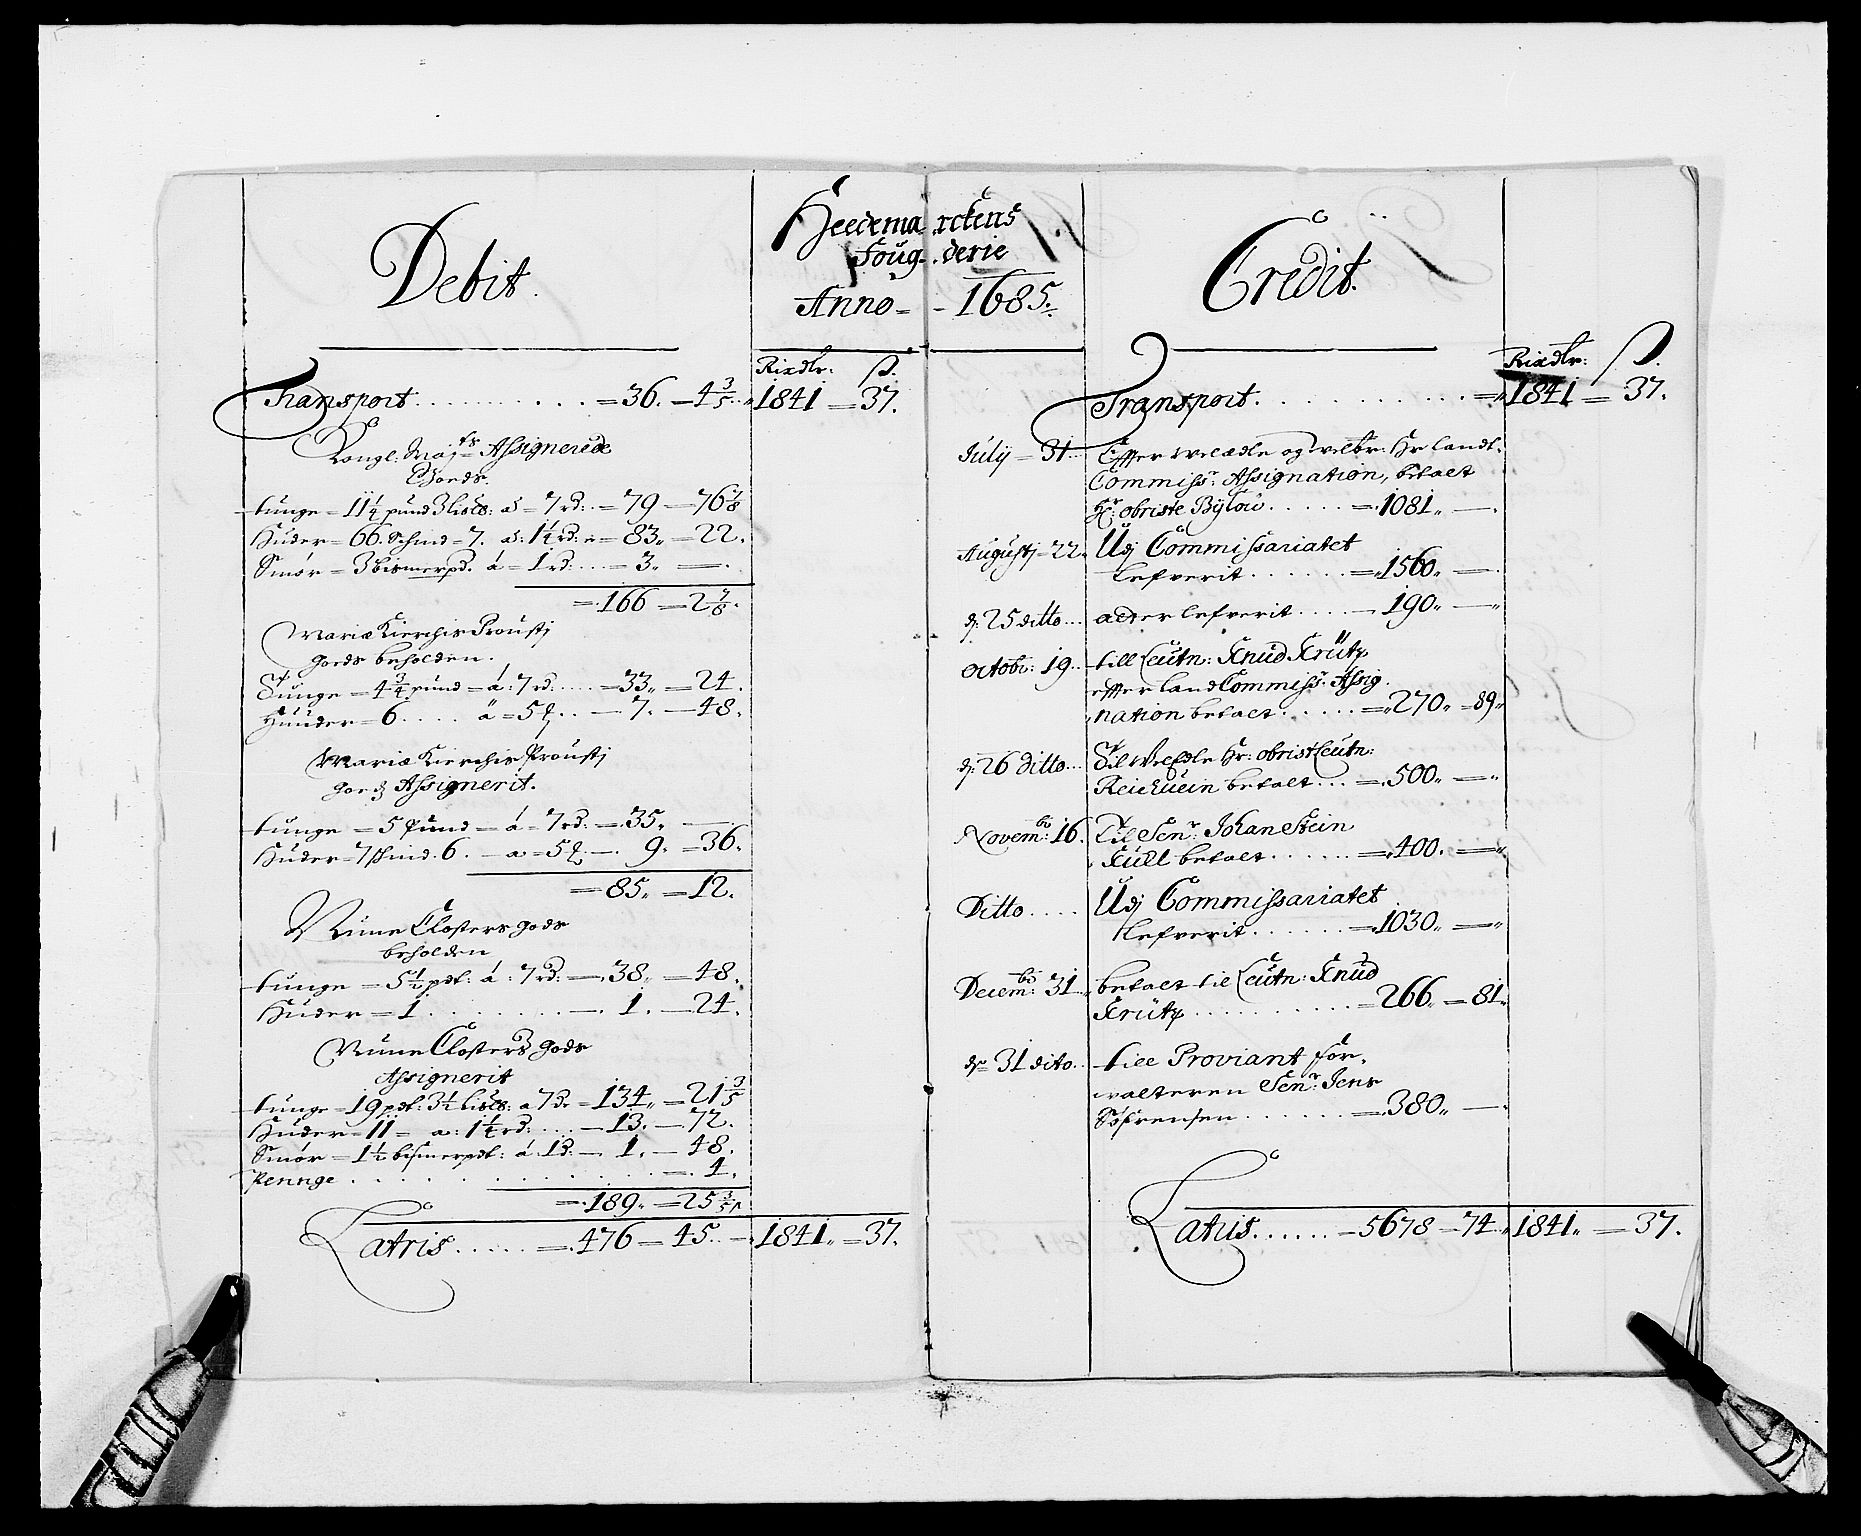 Debit.
Heedemarckens
Fougderie
Anno = - 1685.
Rixdlr: ß.
Transport . . . . . . . . . . = 36. — 4 3/5 .. 1841 = 37.
Kongl: Maj ts Assignerede
Goeds.
tunge = 11 1/4 pund 3 lis℔: a = 7 rd: . = 79 — 76 7/8
Huder = 66. Schind = 7. a: 1 1/4 rd: = 83 „ — 22.
Smør = 3 bismerpd. á = 1 rd: . . . = 3 „ — .
= 166 = 2 7/8.
Mariæ Kierchis Proustj
goeds beholden.
Tunge = 4 3/4 pund = á: 7 rd: . . . . = 33 „ = 24.
Huuder = 6 . . . . á = 5 . . — 7. — 48.
Mariæ Kierchis Proustj
Assignerit.
tunge = 5 Pund — á = 7 rd: = 35 „ — .
Huder = 7 schind. 6. — a = 5 — 9. = 36.
= 85 „ = 12.
Closters gods
beholden
tunge = 5 1/2 pdt: á: 7 rd: — 38 „ = 48.
Huder = 1 . . . . . . . . — 1. — 24.
Closters gods
Assignerit
tunge = 19 pdt: 3 1/2 lis℔: a 7 d = 134 „ = 21 3/5
Huder = 11 = a: 1 1/4 rd: . . . — 13. — 72.
Smør = 1 1/2 bismerpdt: á 1 d: — 1. — 48.
Pennge . . . . . . . . . . . . = 4.
= 189 „ = 25 3/5
Latris . . . . . = 476 = 45 .. — 1841 „ = 37.
Credit.
Rixdlr: ß.
Transport. . . . . . . . . . . = 1841 = 37.
July = 31 .. Effter welædle og welbr: Hr landt-
Commiss r Assignation, betalt
Hr: obriste Bÿlow . . . . . = 1081 „ — .
Augustj = 22 „ Udj Commissariatet
lefverit . . . . . . = 1560 „ — .
d: 25 ditto . . . atter lefverit . . . . — 190 „ — „
octobr: 19 .. till Leutn: Knud Krütz
effter land Commiss r: Assig-
nation betalt . . . . . = 270 „ = 89 „
d: 26 ditto . . . Til Welædle Hr: obristleutn:
betalt . . . = 500 „ — „
Novem br: 16. Til Sen r: Johan Stein
Kull betalt . . . . . . = 400. = „
Ditto . . . . Udj Commissariatet
lefverit . . . . . . = 1030 „ = „
Decem br: 31 .. betalt til Leutn: Knud
Krütz . . . . . . . . . = 266 „ = 81 „
d: 31 dito .. till Proviant for-
walteren Sen r: Jens
Sörensen . . . . . . = 380 „ — .
Latris . . . . . . = 5678 = 74 „ 1841 „ = 37.